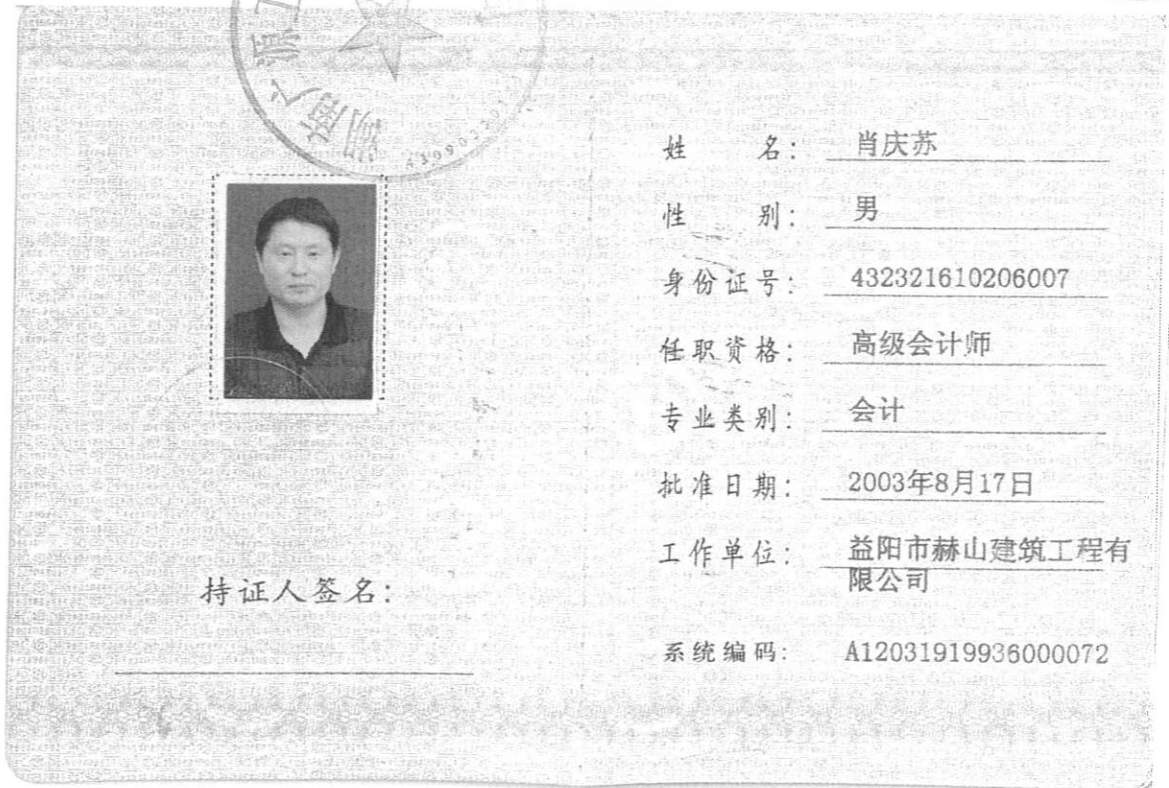 姓 名: 肖庆苏
性 别: 男
身份证号: 432321610206007
任职资格: 高级会计师
专业类别: 会计
批准日期: 2003年8月17日
工作单位: 益阳市赫山建筑工程有
限公司
系统编码: A12031919936000072
持证人签名: